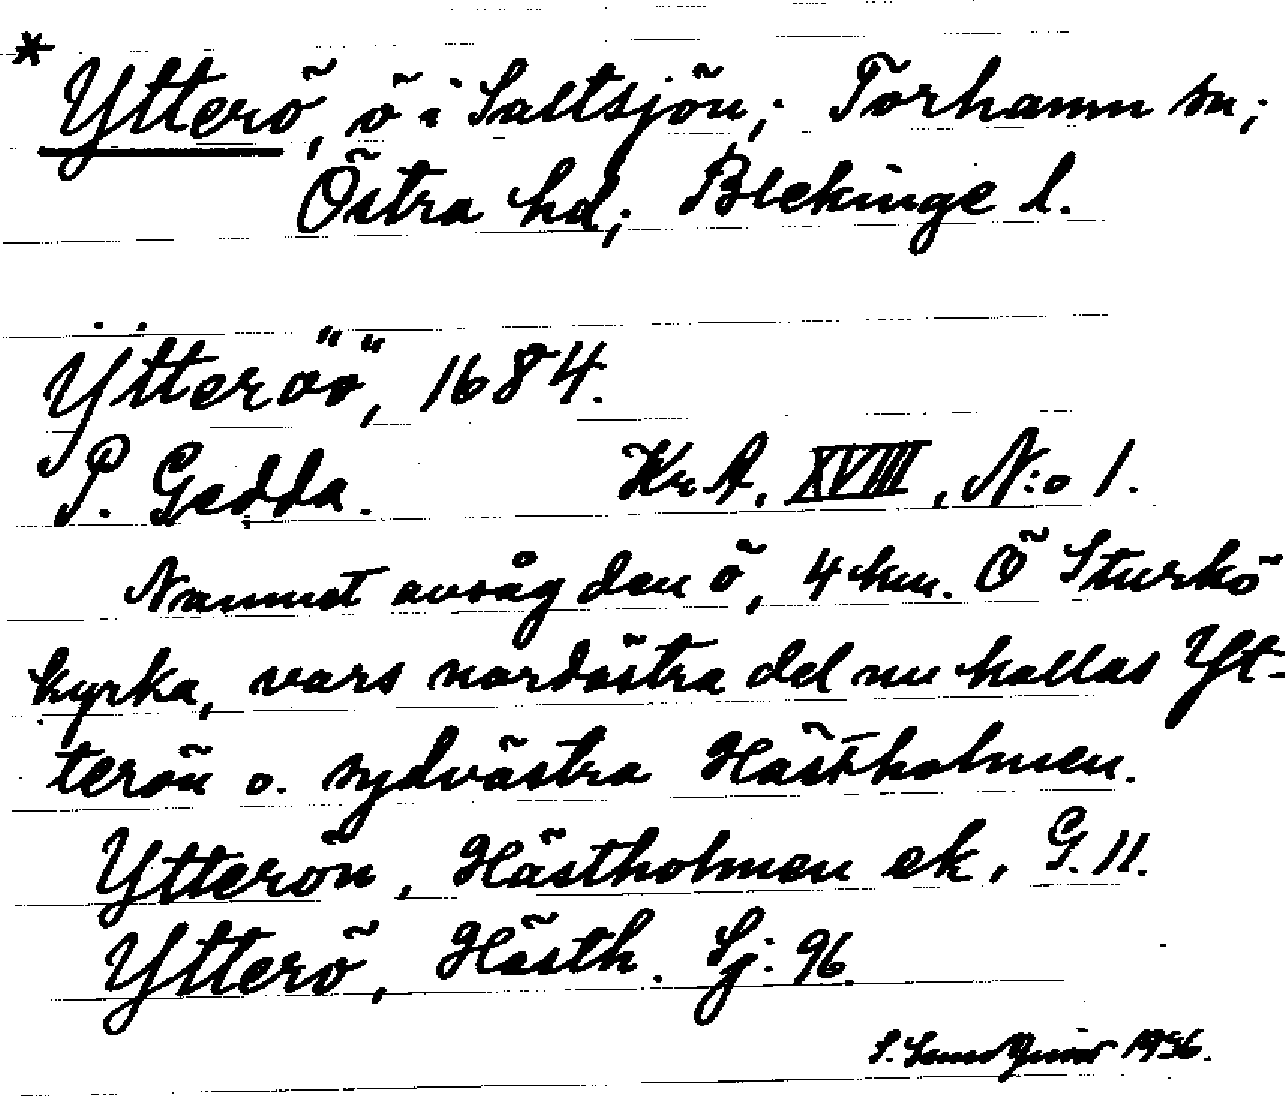 * Ytterö, ö i Saltsjön; Torhamn sn;
Östra hd; Blekinge l.
Ÿtteröö, 1684.
P. Gedda. Kr.A. XVIII, N:o 1.
Namnet avsåg den ö, 4 km. Ö Sturkö
kyrka, vars nordöstra del nu kallas Yt-
terön o. sydvästra Hästholmen.
Ytterön, Hästholmen ek. G. 11.
Ytterö, Hästh. Sj: 96.
1956.